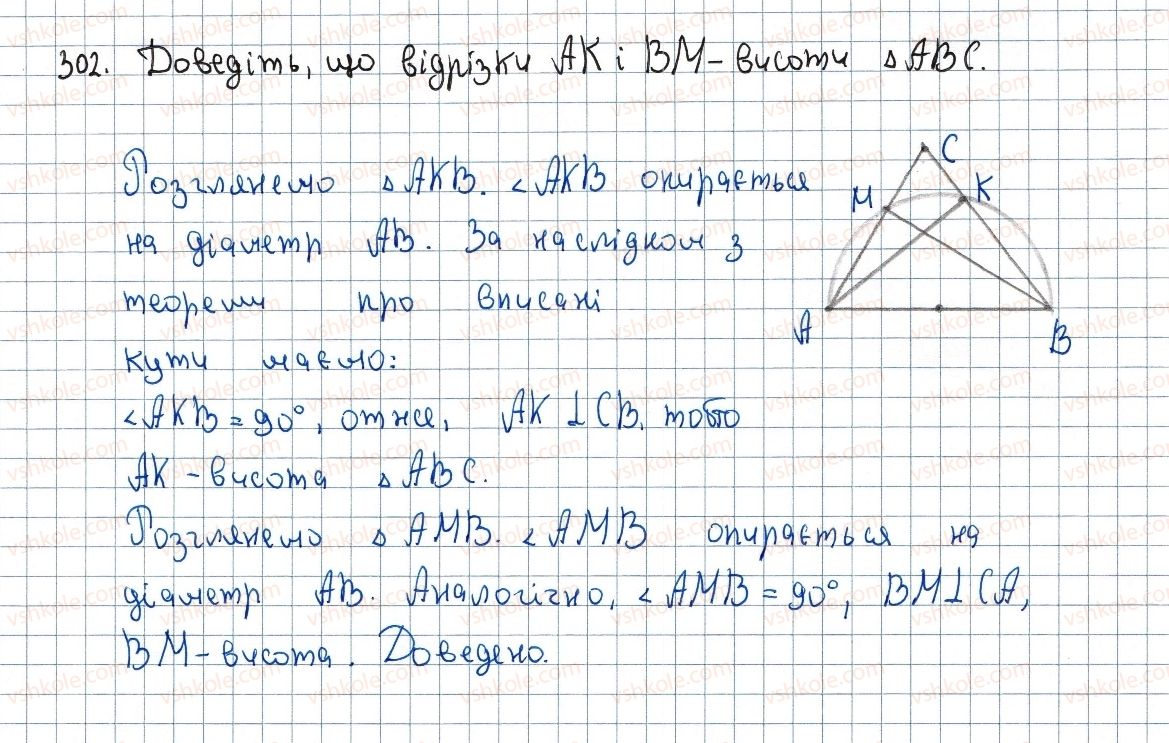 302. Доведіть, що відрізки AK і BM - висоти △ ABC.
Розглянемо △ AKB. ∠AKB опирається
на діаметр AB. За наслідком з
теореми про вписані
кути маємо:
∠AKB = 90°, отже, AK ⊥ CB, тобто
AK - висота △ ABC.
Розглянемо △ AMB. ∠AMB опирається на
діаметр AB. Аналогічно, ∠AMB = 90°, BM ⊥ CA,
BM - висота. Доведено.
C
M
K
A
B
vshkole.com